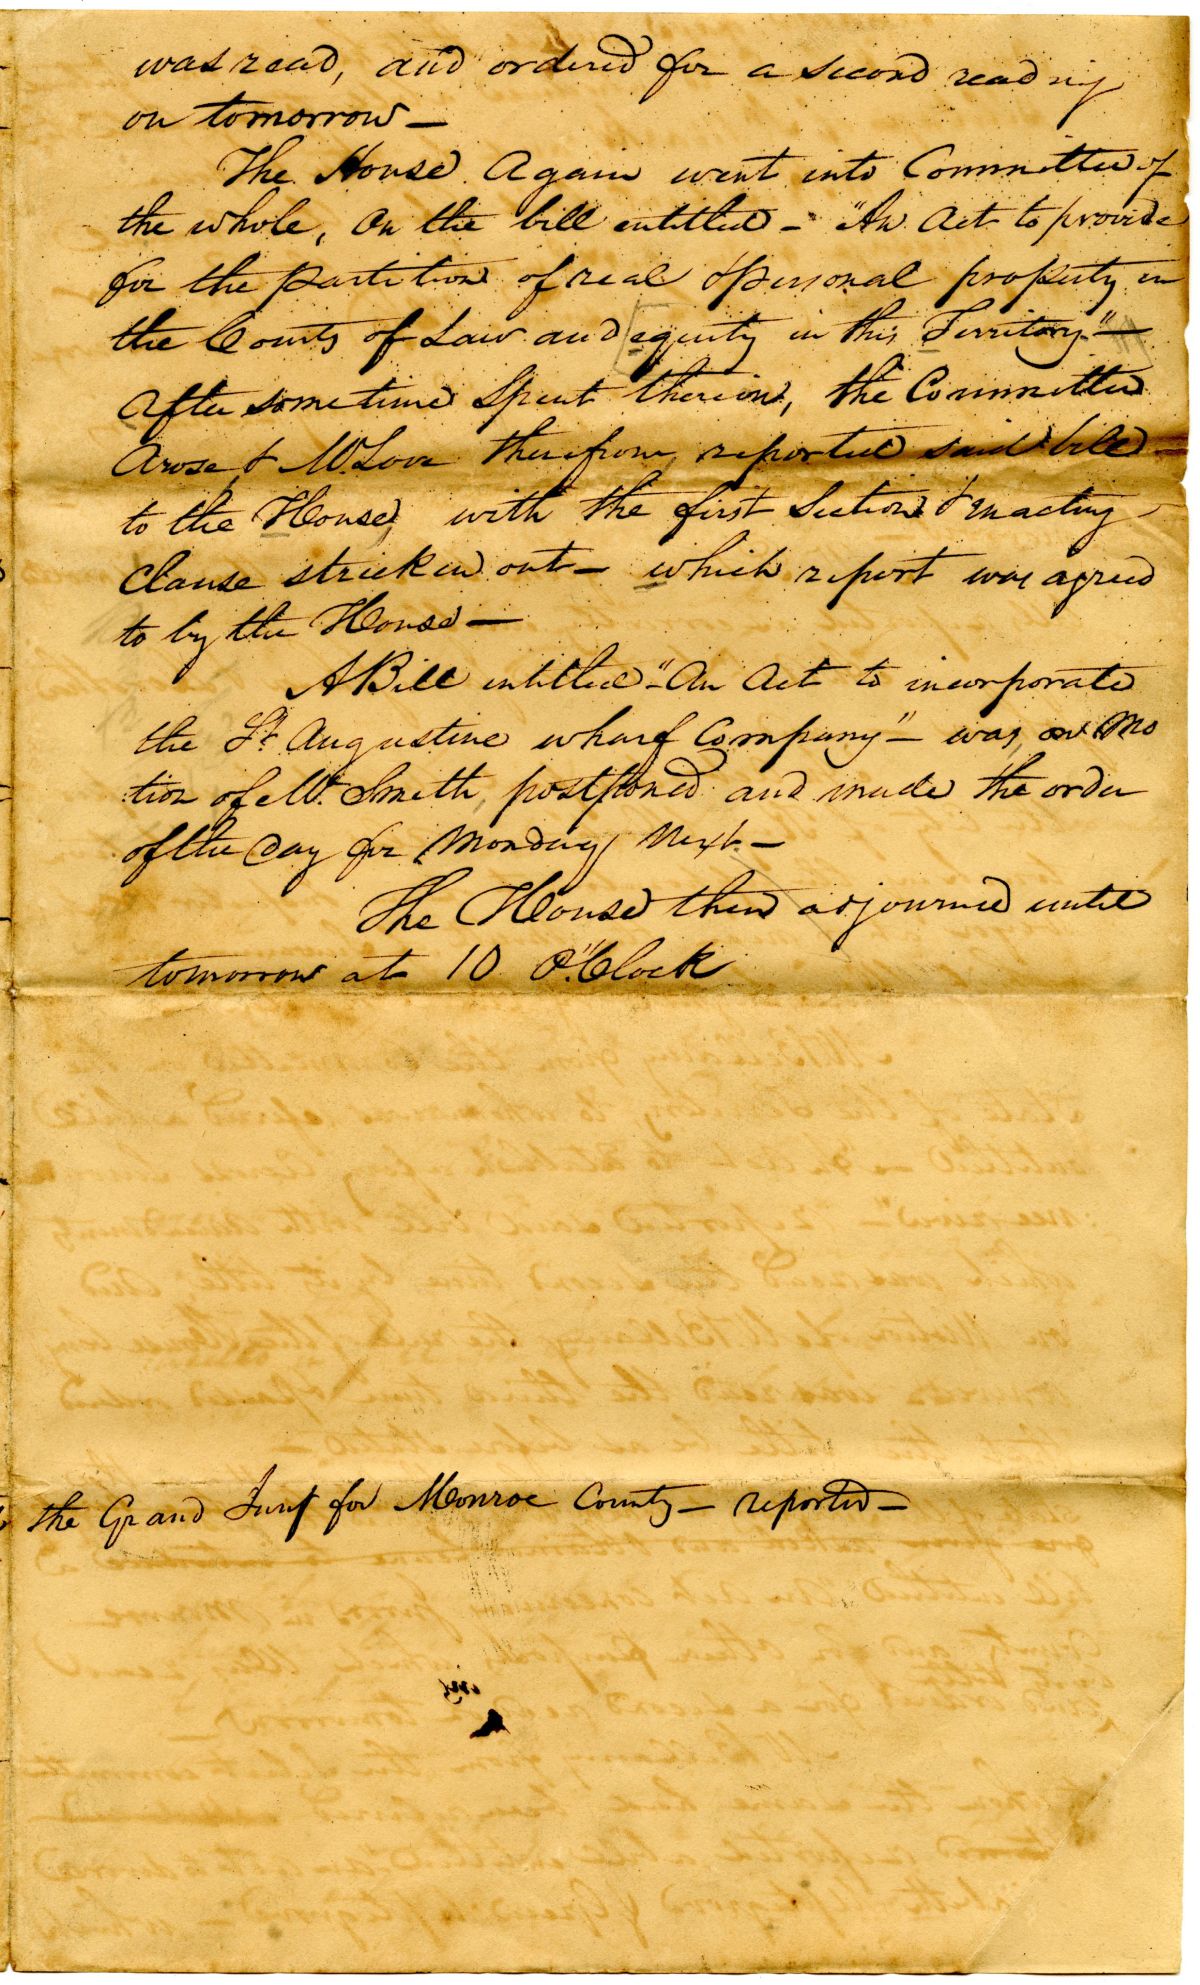 was read, and ordered for a second reading
on tomorrow —
The House Again went into Committee of
the whole, On the bill entitled - "An Act to provide
for the partition of real & personal property in
the Courts of Law and equity in this Territory" —
After some time Spent therein, the Committee
Arose, & Mr. Love therefrom reported said bill
to the House, with the first Section & enacting
Clause stricken out — which report was agreed
to by the House —
A Bill entitled - "An Act to incorporate
the St. Augustine wharf Company" — was, on Mo
tion of Mr. Smith, postponed and made the order
of the Day for Monday Next —
The House then adjourned until
tomorrow at 10 O'Clock
the Grand Jury for Monroe County — reported —